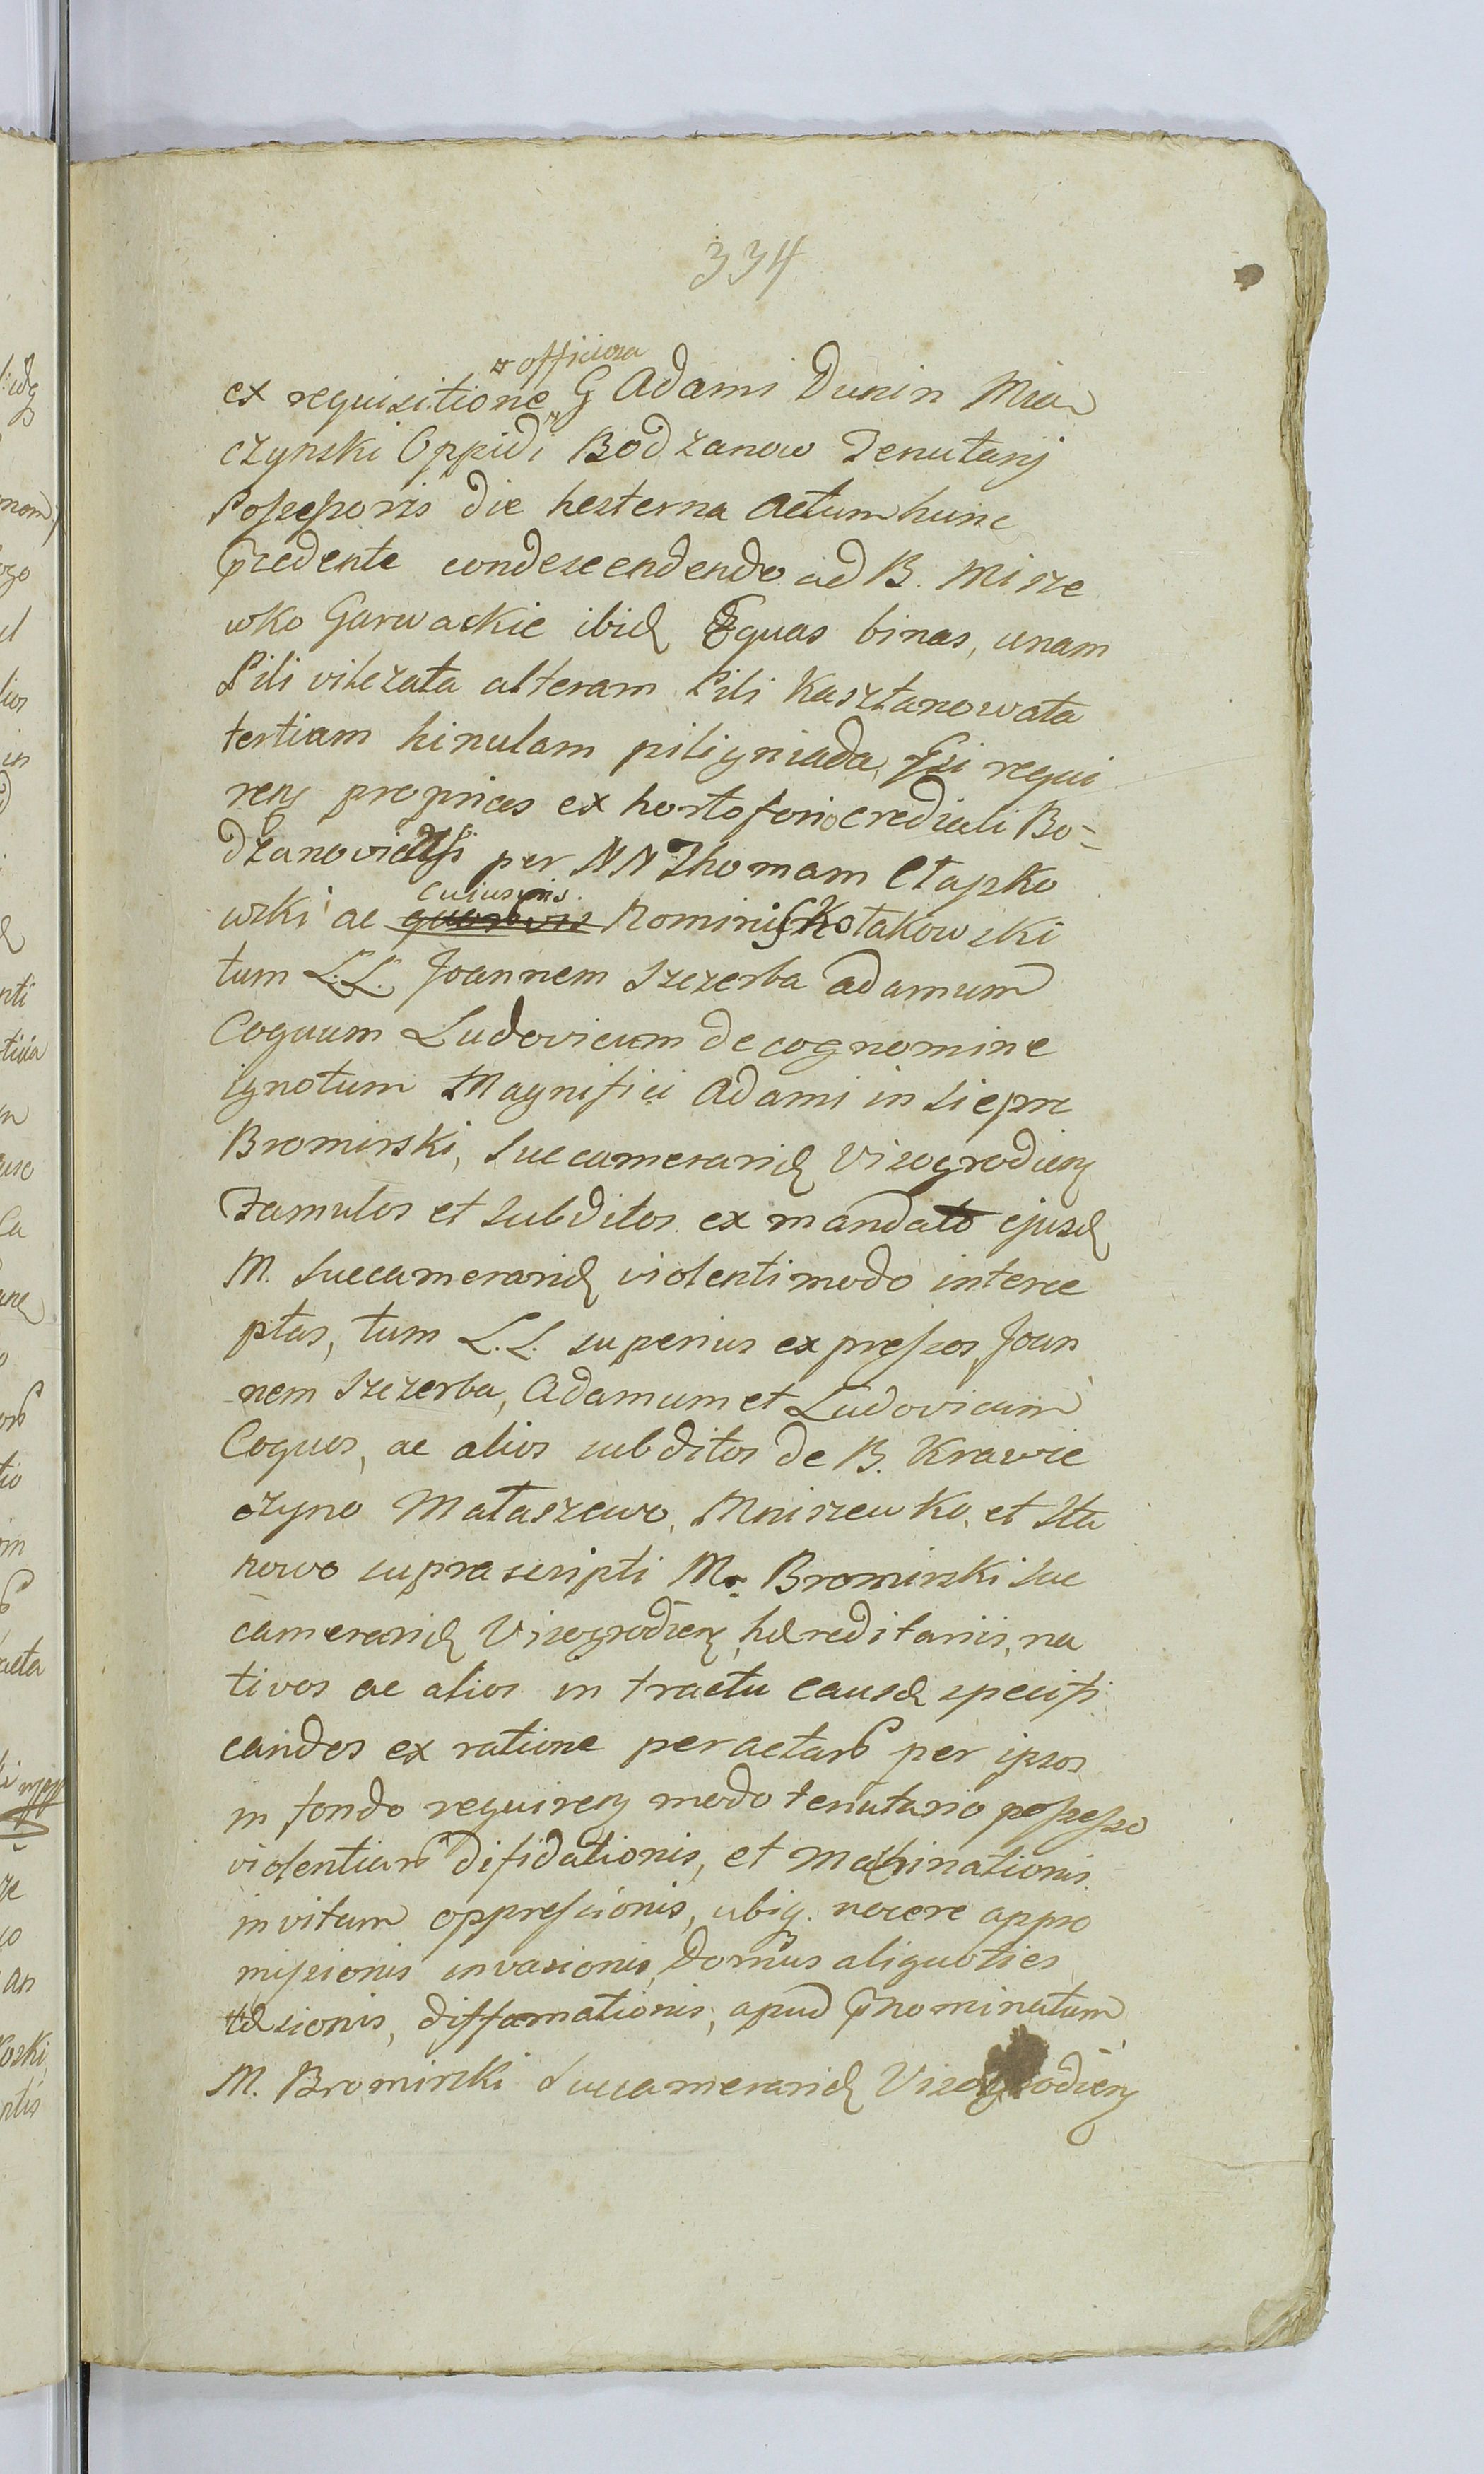 334
¤ officiosa
ex requisitione G Adami Dunin Mia
czynski Oppidi Bodzanow Tenutarij
Possessoris die hesterna Actum hunc
Pręcedente condescendendo ad B. Misze
wko Garwackie ibidę Equas binas, unam
Pili vilczata alteram Pili Kasztanowata
tertiam hinulam pili gniada, sui requi
rens proprias ex horto foriocrediali Bo-
dzanoviensi per NN Thomam Cłapko
wski ac quosvis cuiusvis Nominis Kołakowski
tum L.L. Joannem Szczerba Adamum
Coquum Ludovicum de cognomine
ignotum Magnifici Adami in Siepre
Bromirski, Succamerarię Visogrodiens
Famulos et Subditos ex mandato ejusdę
M. Succamerarię violenti modo interce
ptas, tum L.L. superius expressos Joan
nem Szczerba, Adamum et Ludovicum
Coquos, ac alios subditos de B. Krawie
czyno Mataszewo, Mniszewko, et Sta
nowo suprascripti M. Bromirski Suc
camerarię Visogrodiens, hæreditariis, na
tivos ac alios in tractu causæ specifi
candos ex ratione peractarum per ipsos
in fondo requirens modo tenutario possesso
violentiarum difidationis, et machinationis
in vitam oppressionis, ubiq. nocere appro
missionis invasionis, Domus aliquoties
læsionis, diffamationis, apud prænominatum
M. Bromirski Succamerarię Visogrodiens